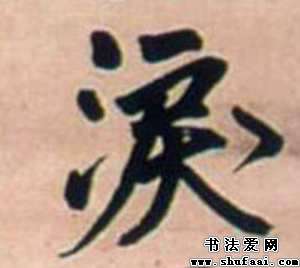 淚
书法爱网
www.shufaai.com